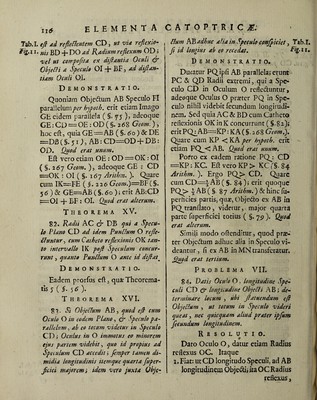 116 ELEMENTA CATOPTRICÆ.
Tab.I. est ad reflectentem CD, ut via reflexio-
Fig.11. nis BD + DO ad Radium reflexum OD;
vel ut composita ex distantia Oculi &
Objecti a Speculo OI + BF, ad distan-
tiam Oculi OI.
DEMONSTRATIO.
Quoniam Objectum AB Speculo FI
parallelum per hypoth. erit etiam Imago
GE eidem parallela (§. 75), adeoque
GE:CD=OE:OD (§. 268 Geom.),
hoc est, quia GE=AB (§. 60) & DE
=DB (§. 51), AB:CD=OD+DB:
OD. Quod erat unum.
Est vero etiam OE:OD=OK:OI
(§. 267 Geom.), adeoque GE:CD
=OK:OI (§. 167 Arithm.). Quare
cum IK=FE (§. 226 Geom.)=BF (§.
56) & GE=AB (§. 60); erit AB:CD
=OI+BF:OI. Quod erat alterum.
THEOREMA XV.
82. Radii AC & DB qui a Specu-
lo Plano CD ad idem Punctum O refle-
ctuntur, cum Catheto reflexionis OK tan-
to intervallo IK post Speculum concur-
runt, quanto Punctum O ante id distat.
DEMONSTRATIO.
Eadem prorsus est, quæ Theorema-
tis 5 (§. 56).
THEOREMA XVI.
83. Si Objectum AB, quod est cum
Oculo O in eodem Plano, & Speculo pa-
rallelum, ab eo totum videtur in Speculo
CD; Oculus in O immotus eo minorem
ejus partem videbit, quo id propius ad
Speculum CD accedit; semper tamen di-
midia longitudinis itemque quarta super-
ficiei majorem; idem vero juxta Obje-
ctum AB adhuc alia in Speculo conspiciet, Tab.I.
si id longius ab eo recedat. Fig.11.
DEMONSTRATIO.
Ducatur PQ ipsi AB parallela; erunt
PC & QD Radii extremi, qui a Spe-
culo CD in Oculum O reflectuntur,
adeoque Oculus O præter PQ in Spe-
culo nihil videbit secundum longitudi-
nem. Sed quia AC & BD cum Catheto
reflexionis OK in K concurrunt (§. 82);
erit PQ:AB=KP:KA (§. 268 Geom.).
Quare cum KP < KA per hypoth. erit
etiam PQ < AB. Quod erat unum.
Porro ex eadem ratione PQ:CD
=KP:KC. Est vero KP > KC (§. 84
Arithm.). Ergo PQ > CD. Quare
cum CD=½AB (§. 84); erit quoque
PQ > ½AB (§. 87 Arithm.) & hinc su-
perficiei partis, quæ, Objecto ex AB in
PQ translato, videtur, major quarta
parte superficiei totius (§. 79). Quod
erat alterum.
Simili modo ostenditur, quod præ-
ter Objectum adhuc alia in Speculo vi-
deantur, si ex AB in MN transferatur.
Quod erat tertium.
PROBLEMA VII.
84. Datis Oculo O, longitudine Spe-
culi CD & longitudine Objecti AB; de-
terminare locum, ubi statuendum est
Objectum, ut totum in Speculo videri
queat, nec quicquam aliud præter ipsum
secundum longitudinem.
RESOLUTIO.
Dato Oculo O, datur etiam Radius
reflexus OC. Itaque
1. Fiat: ut CD longitudo Speculi, ad AB
longitudinem Objecti, ita OC Radius
reflexus,